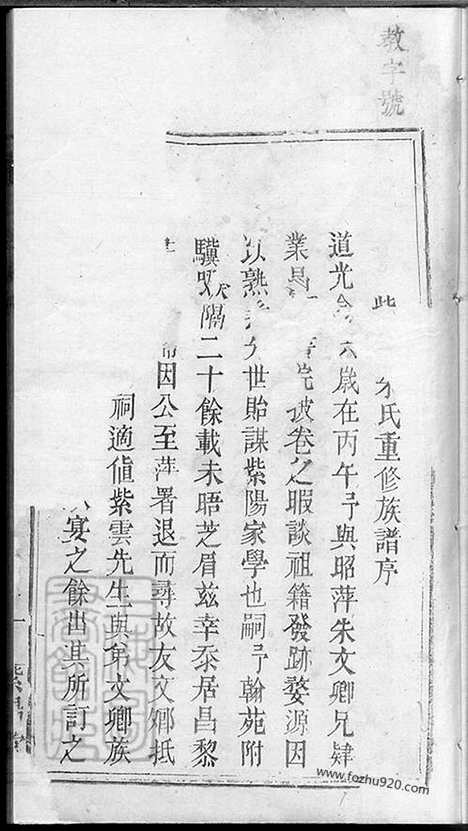 教字號
朱氏重修族譜序
道光 六歲在丙午予與昭萍朱文卿兄肄
業 院披卷之暇談祖籍發跡婺源因
以熟 世貽謀紫陽家學也嗣予翰苑附
驥 隔二十餘載未晤芝眉茲幸忝居昌黎
因公至萍署退而尋故友文卿抵
祠適值紫雲先生與弟文卿族
宴之餘出其所訂之
紫陽堂
www.fozhu920.com